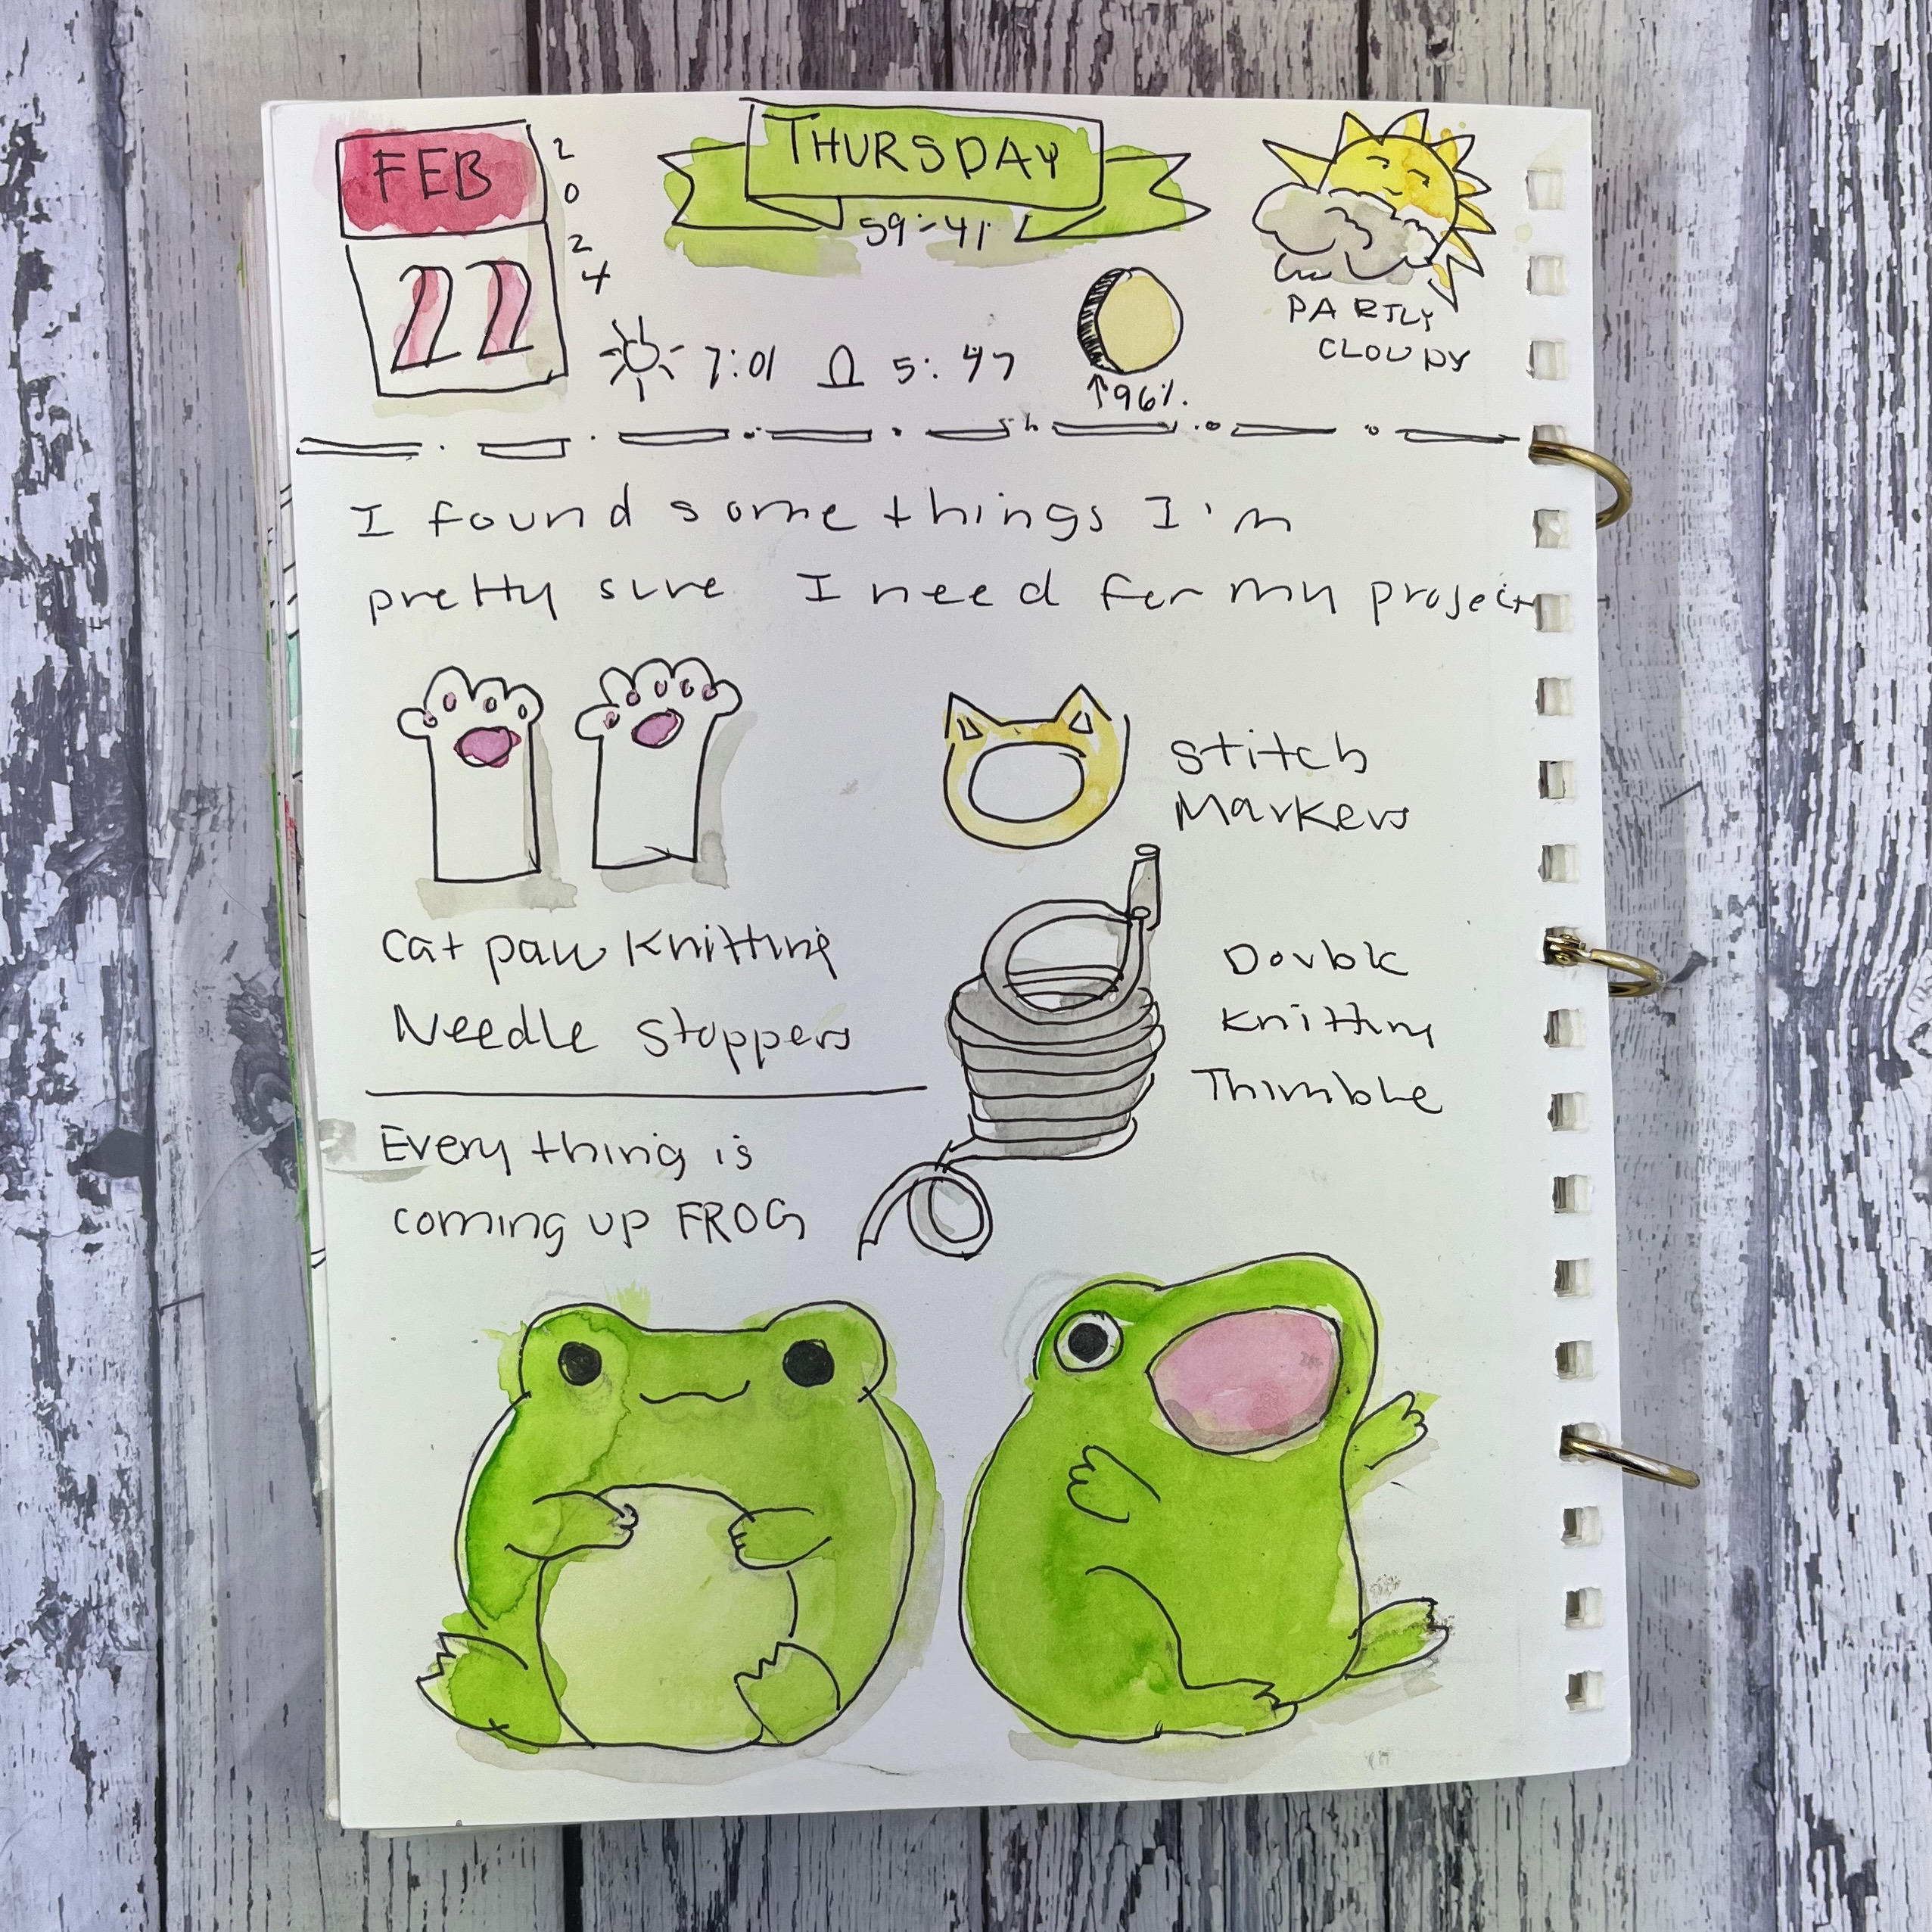 FEB
2024
22
THURSDAY
59°-41°
PARTLY
CLOUDY
7:01 5:47
↑96%.
I found some things I'm
pretty sure I need for my project
Stitch
Markers
Cat paw Knitting
Needle Stoppers
Double
Knitting
Thimble
Every thing is
coming up FROG